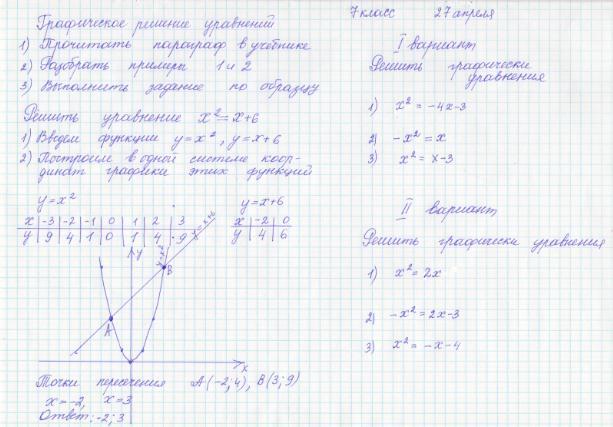 Графическое решение уравнений
1) Прочитать параграф в учебнике
2) Разобрать примеры 1 и 2
3) Выполнить задание по образцу
Решить уравнение x² = x+6
1) Введем функции y=x², y=x+6
2) Построим в одной системе коор-
динат графики этих функций
y=x²
x -3 -2 -1 0 1 2 3
y 9 4 1 0 1 4 9
y=x+6
x -2 0
y 4 6
y=x+6
y=x²
y
B
A
x
Точки пересечения A(-2;4), B(3;9)
x=-2, x=3
Ответ: -2; 3
7 класс 27 апреля
I вариант
Решить графически
уравнения
1) x² = -4x-3
2) -x² = x
3) x² = x-3
II вариант
Решить графически уравнения
1) x² = 2x
2) -x² = 2x-3
3) x² = -x-4